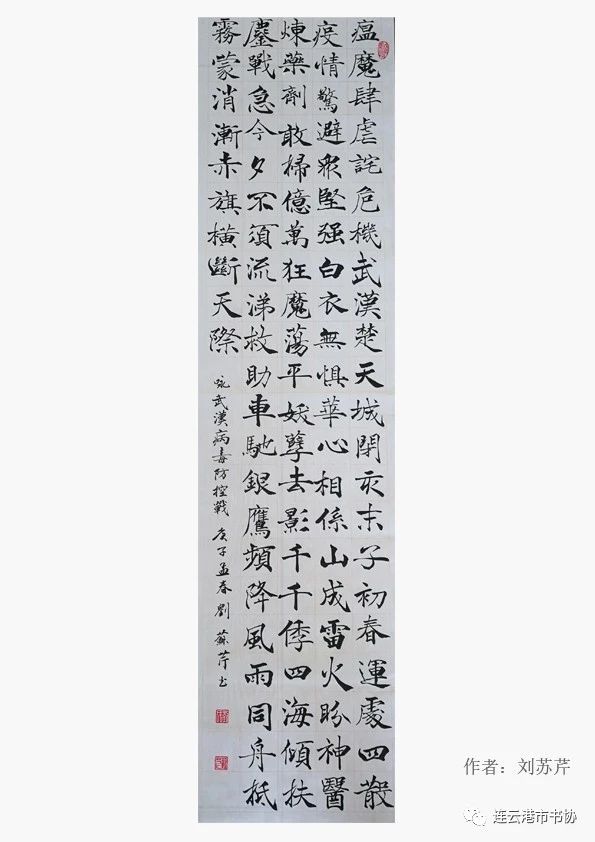 瘟魔肆虐詫危機武漢楚天城閉亥末子初春運處四散
疫情驚避眾堅强白衣無惧華心相係山成雷火盼神醫
煉藥劑敢掃億萬狂魔蕩平妖孽去影千千四海傾扶
鏖戰急今夕不須流涕救助車馳銀鷹頻降風雨同舟抵
霧蒙消漸赤旗橫斷天際
咏武漢病毒防控戰 庚子孟春劉蘇芹书
作者：刘苏芹
连云港市书协